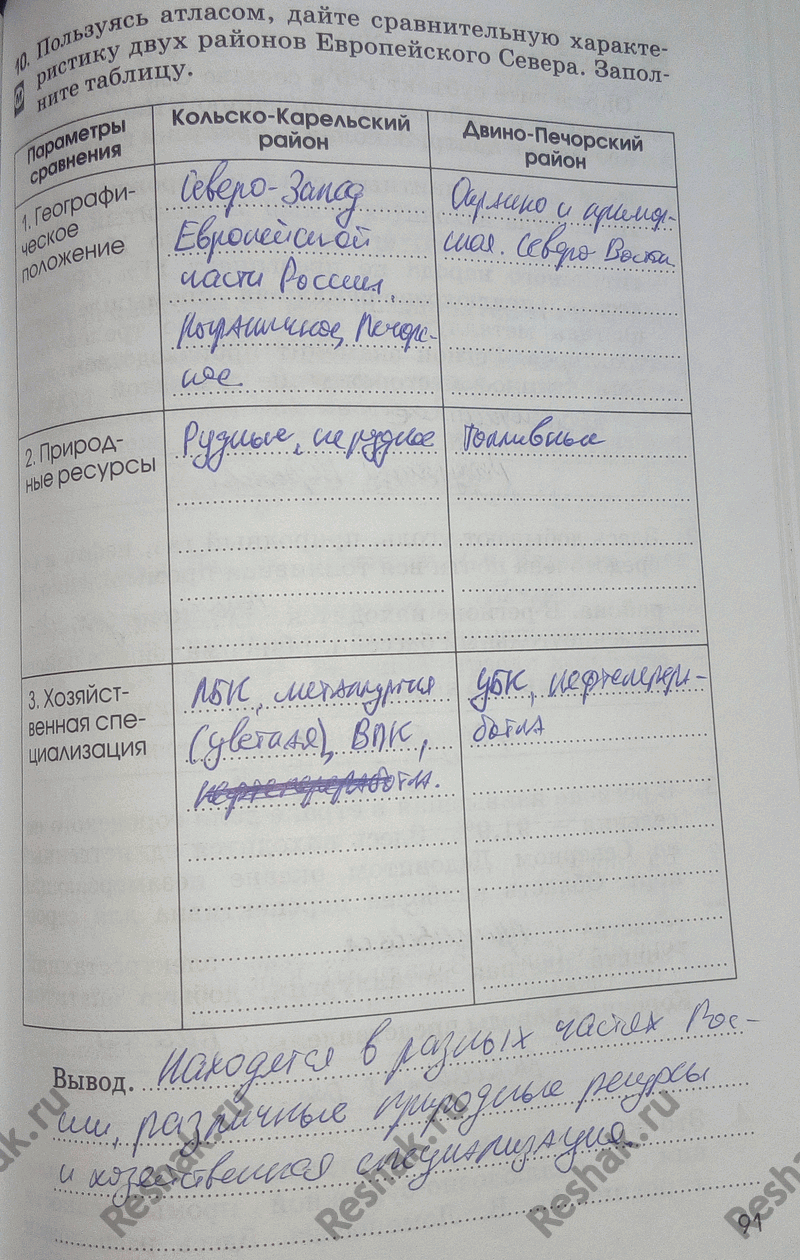 10. Пользуясь атласом, дайте сравнительную характе-
ристику двух районов Европейского Севера. Запол-
ните таблицу.
Параметры
сравнения
Кольско-Карельский
район
Двино-Печорский
район
1. Географи-
ческое
положение
Северо-Запад
Европейской
части России,
Пограничное,
и примор-
ская. Северо Восток
2. Природ-
ные ресурсы
Рудные, нерудное
Топливные
3. Хозяйст-
венная спе-
циализация
ЛБК, металлургия
(цветная), ВПК,
нефтепереработка.
нефтеперера-
ботка
Вывод. Находятся в разных частях Рос-
сии, различные природные ресурсы
и хозяйственная специализация.
91
Reshak.ru
Reshak.ru
Reshak.ru
Reshak.ru